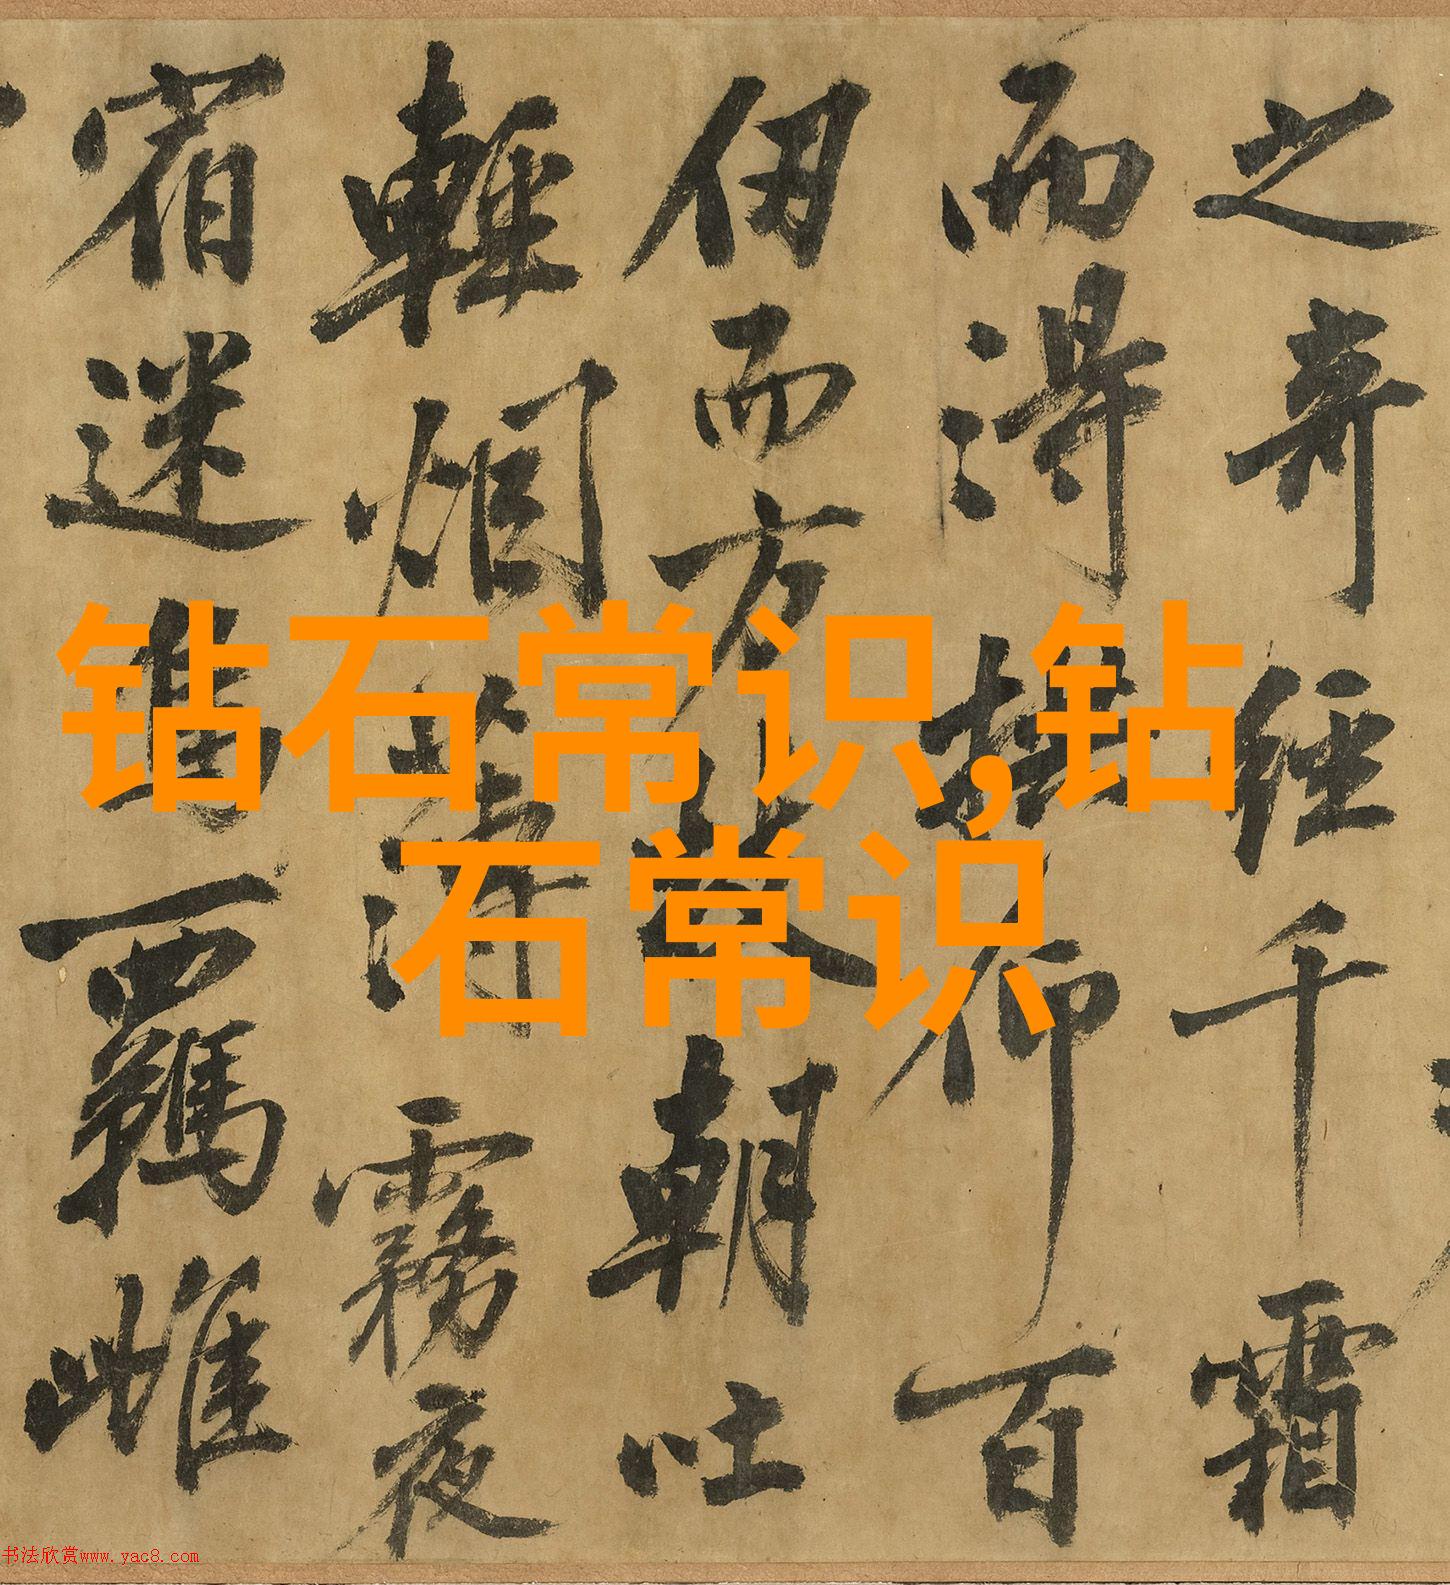 钻石常识,钻
石常识
之奇經千霜
而得拱仰百
仞而方枝朝吐
輕烟薄霧夜
宿迷鳥羈雌
书法欣赏www.yac8.com